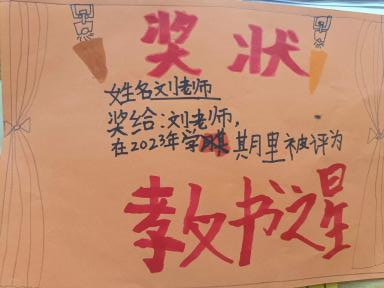 奖状
姓名刘老师
奖给:刘老师,
在2023年学期里被评为
教书之星